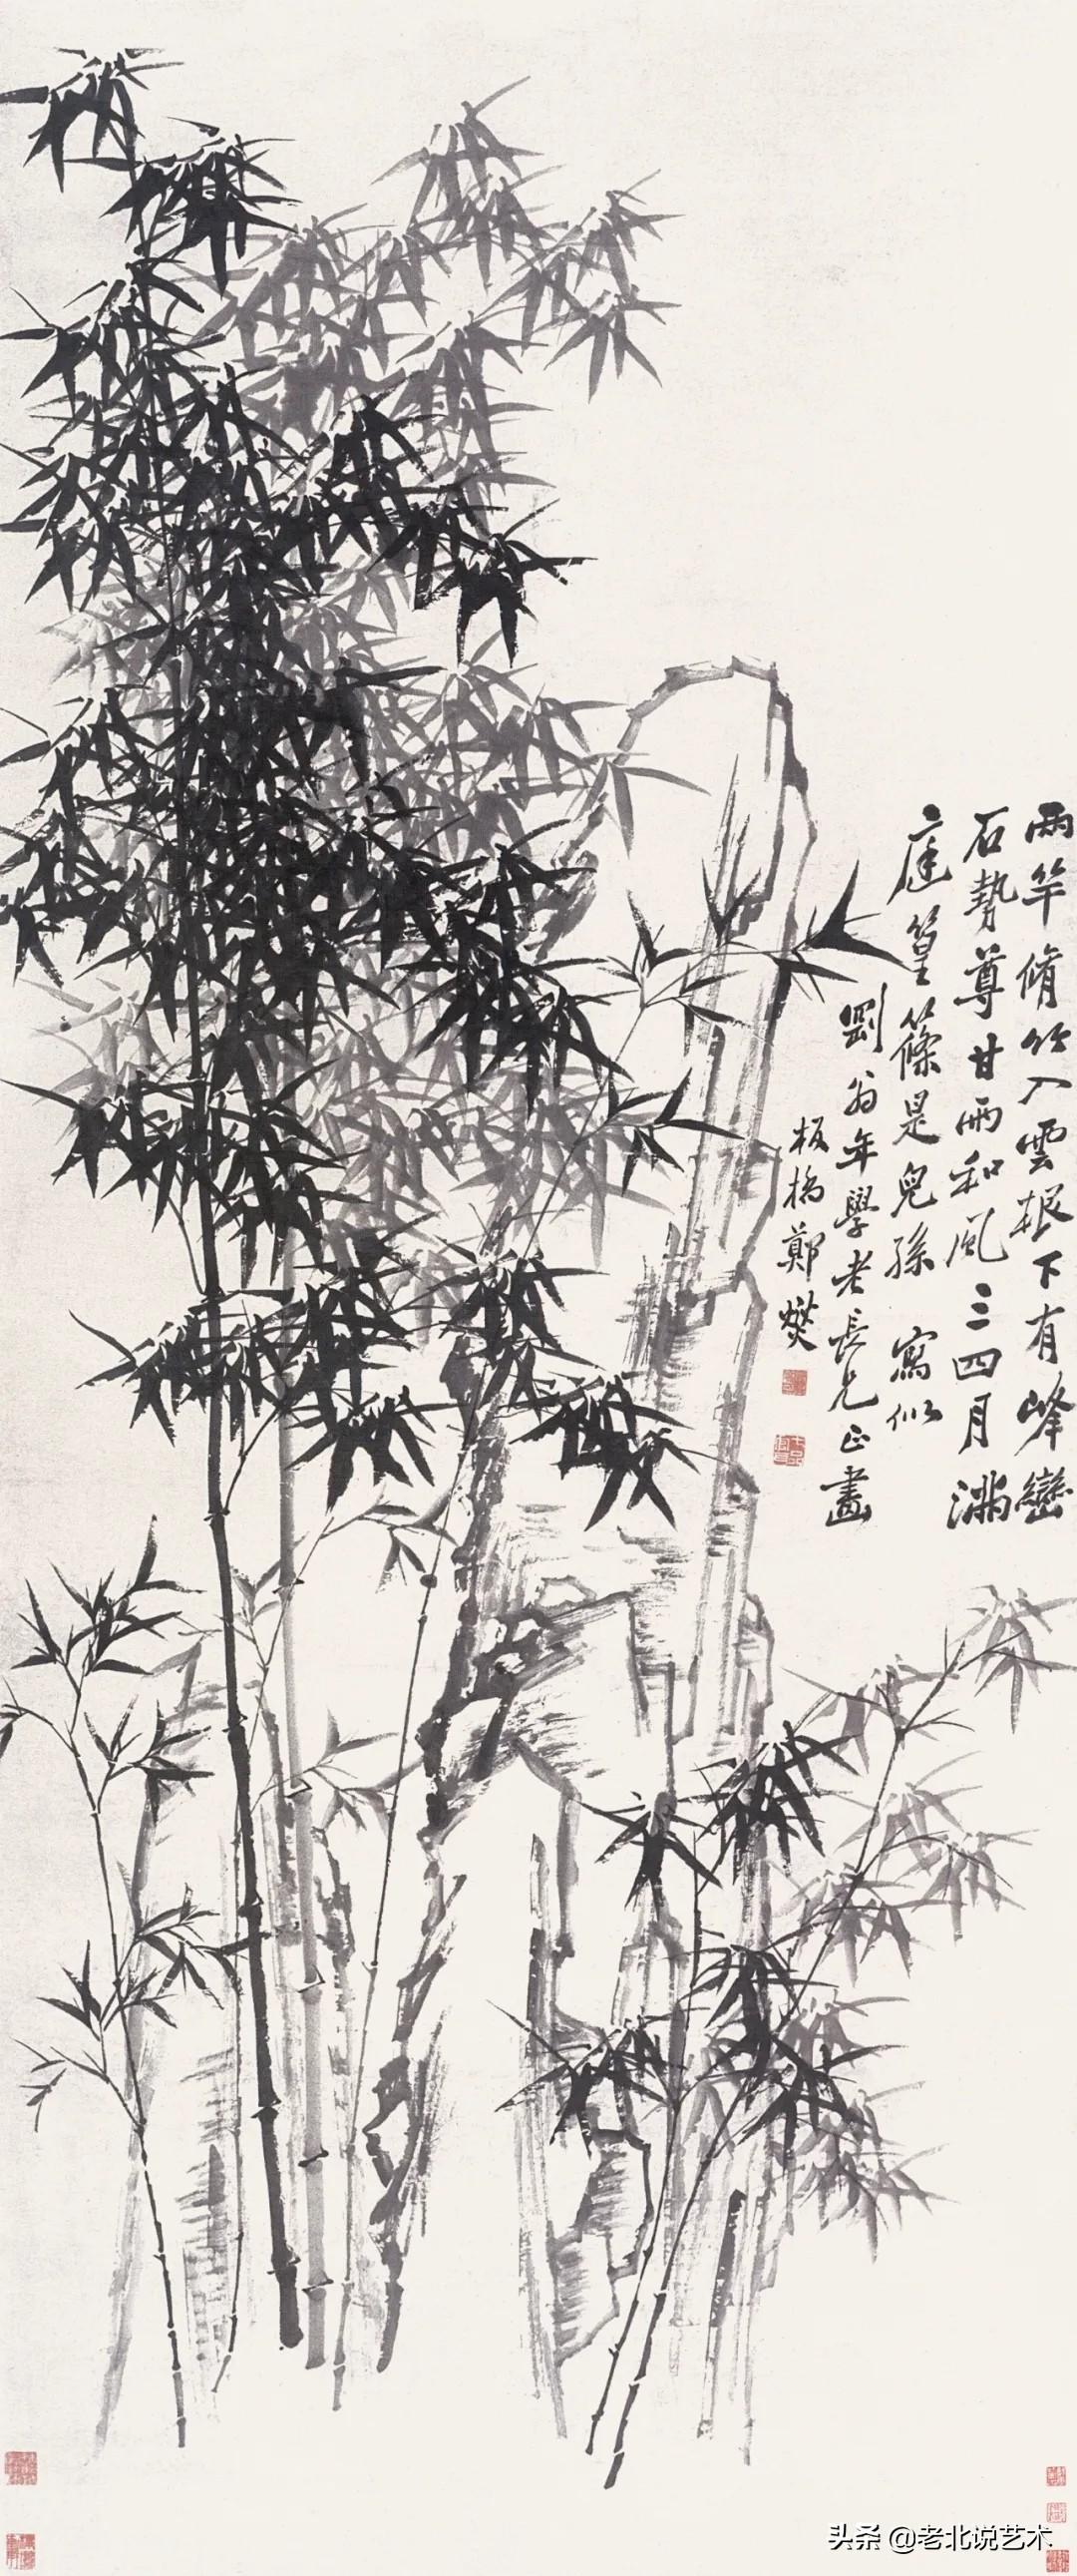 兩竿脩竹入雲根下有峰巒
石勢尊甘雨和風三四月滿
庭篁篠是兒孫 寫似
劉翁年學老長兄正畫
板橋鄭燮
头条 @老北说艺术